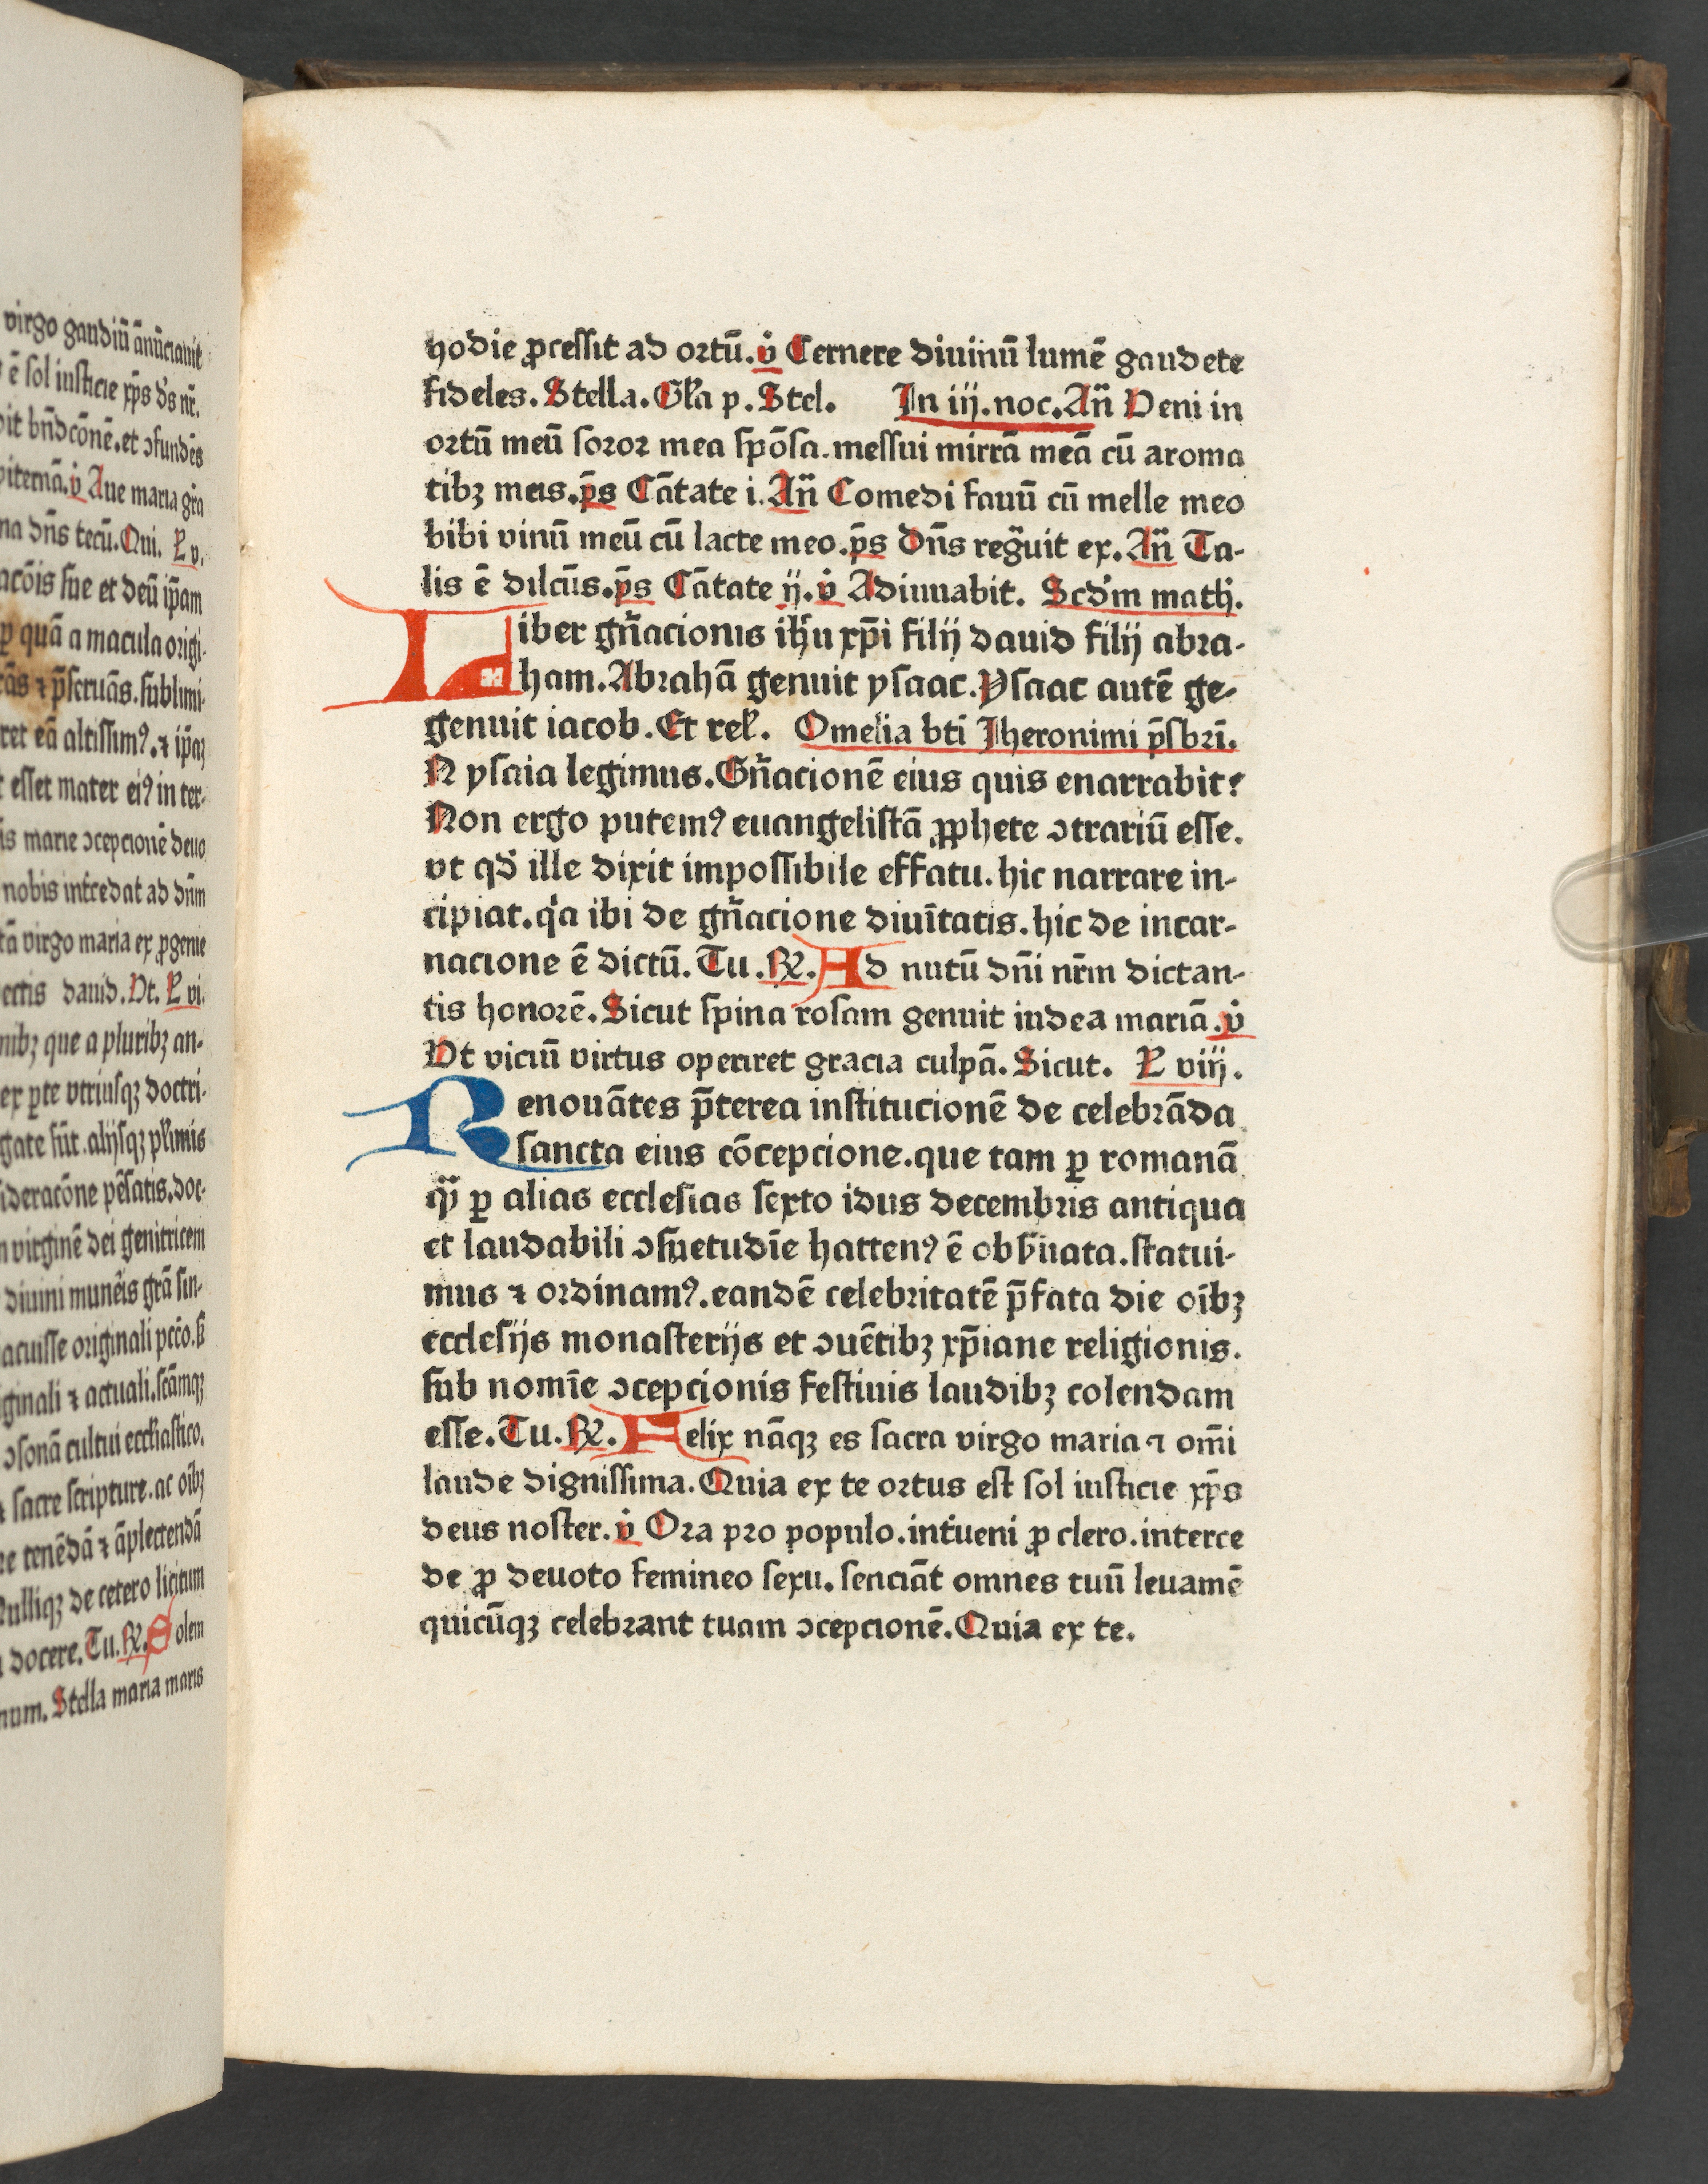 virgo gaudiū ānūciauit
ē sol iusticie xp̄s dn̄s nr̄.
bn̄dcōnē. et ↄfundēs
piternā. v̇ Aue maria grā
dn̄s tecū. Qui. L̵ v.
acōis sue et deū ip̄am
ꝑ quā a macula origi-
⁊ p̄seruās. sublimi-
ret eā altissimꝰ. ⁊ ip̄aꝫ
esset mater eiꝰ in ter-
is marie ↄcepcionē deuo
nobis int̄cedat ad dn̄m
virgo maria ex ꝓgenie
dauid. Vt. L̵ vi.
nibꝫ que a pluribꝫ an-
ex ꝑte vtriusqꝫ doctri-
gate sūt. alijsqꝫ pl̄imis
ideracōne pēsatis. doc-
virginē dei genitricem
diuini munēis grā sin-
acuisse originali pccō. sꝫ
iginali ⁊ actuali. scāmqꝫ
ↄsonā cultui eccl̄iastico.
sacre scripture. ac oībꝫ
tenēdā ⁊ āplectendā
Nulliqꝫ de cetero licitum
docere. Tu. ℞. Solem
num. Stella maria maris
hodie ꝓcessit ad ortū. v̇ Cernere diuinū lumē gaudete
fideles. Stella. Gl̄a p. Stel. In iij. noc. An̄ Veni in
ortū meū soror mea spōsa. messui mirrā meā cū aroma
tibꝫ meis. p̄s Cātate i. An̄ Comedi fauū cū melle meo
bibi vinū meū cū lacte meo. p̄s Dn̄s regᷓuit ex. An̄ Ta-
lis ē dilcūs. p̄s Cātate ij. v̇ Adiuuabit. Scd̄m math̄.
Liber gn̄acionis ih̄u xp̄i filij dauid filij abra-
ham. Abrahā genuit ysaac. Ysaac autē ge-
genuit iacob. Et rel̄. Omelia bti̅ Jheronimi p̄sbrī.
N ysaia legimus. Gn̄acionē eius quis enarrabit?
Non ergo putemꝰ euangelistā ꝓphete ↄtrariū esse.
vt qd̄ ille dixit impossibile effatu. hic narrare in-
cipiat. qͥa ibi de gn̄acione diuītatis. hic de incar-
nacione ē dictū. Tu. ℞. Ad nutū dn̄i nr̄m dictan-
tis honorē. Sicut spina rosam genuit iudea mariā. v̇
Vt viciū virtus operiret gracia culpā. Sicut. L̵ viij.
Renouātes p̄terea institucionē de celebrāda
sancta eius cōcepcione. que tam ꝑ romanā
qᷓ ꝑ alias ecclesias sexto idus decembris antiqua
et laudabili ↄsuetudīe hactenꝰ ē obs̄uata. statui-
mus ⁊ ordinamꝰ. eandē celebritatē p̄fata die oībꝫ
ecclesijs monasterijs et ↄuētibꝫ xp̄iane religionis.
sub nomīe ↄcepcionis festiuis laudibꝫ colendam
esse. Tu. ℞. Felix nāqꝫ es sacra virgo maria ⁊ om̄i
laude dignissima. Quia ex te ortus est sol iusticie xp̄s
deus noster. v̇ Ora pro populo. int̄ueni ꝓ clero. interce
de ꝓ deuoto femineo sexu. senciāt omnes tuū leuamē
quicūqꝫ celebrant tuam ↄcepcionē. Quia ex te.